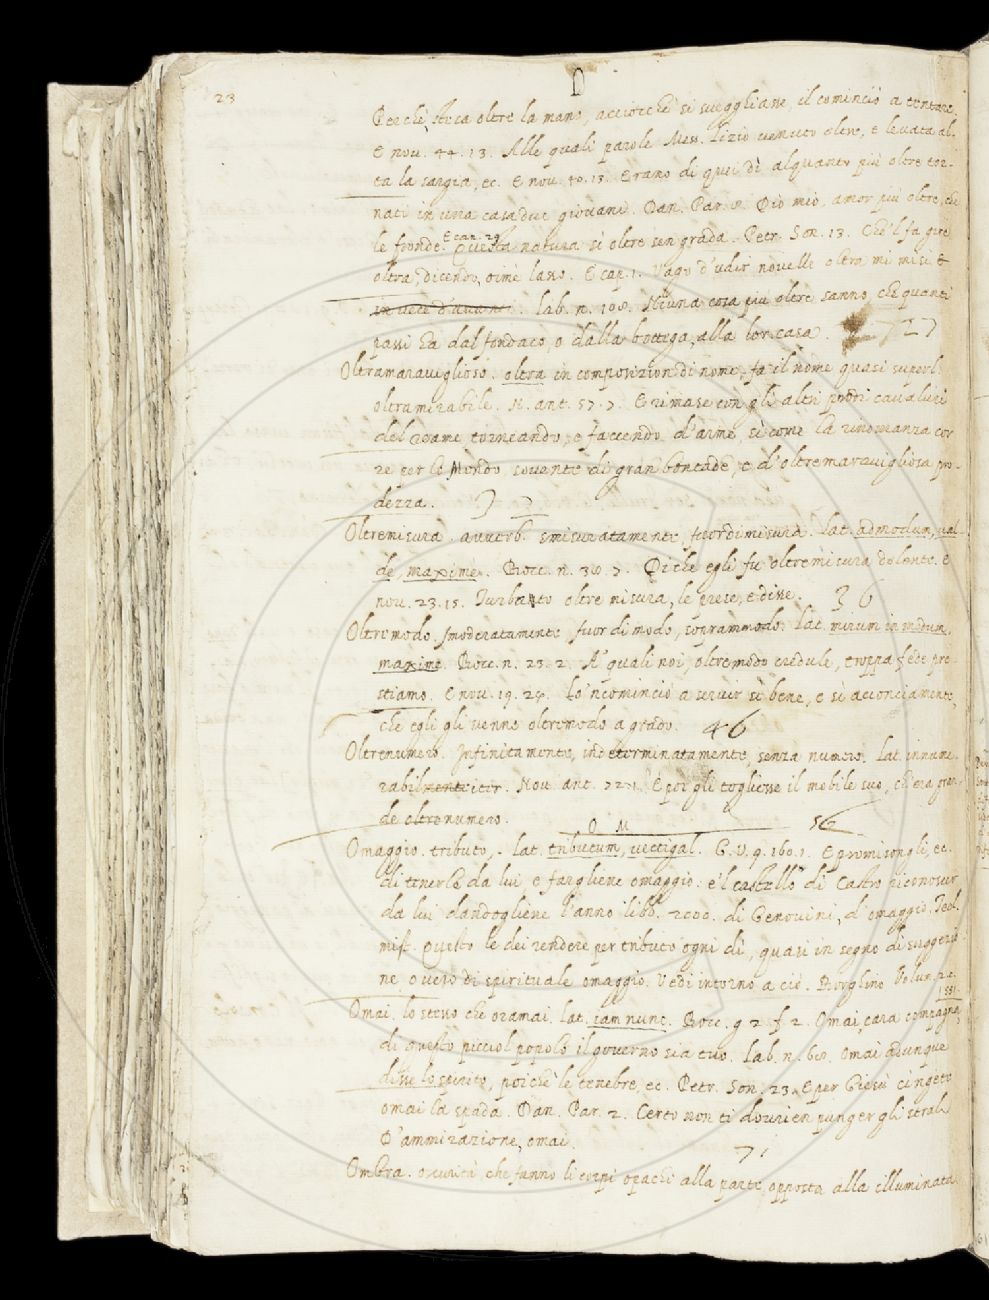 23
O
Perchè stesa oltre la mano, acciocchè si svegghiasse, il cominciò a tentare.
E nov. 44. 13. Alle quali parole Mess. Lizio venuto oltre, e levata al-
ta la sargia, ec. E nov. 40. 13. Erano di quei dì alquanto più oltre tor-
nati in una casa due giovani. Dan. Par. Diò mio, amor più oltre, che
le fronde. E can. 29. Questa natura sì oltre sen grada. Petr. Son. 13. Che'l fa gire
oltra, dicendo, oimè lasso. E cap. 1. Vago d'udir novelle oltra mi misi. E
in vece d'avanti. lab. n. 108. Niuna cosa più oltre sanno, che quanti
passi ha dal fondaco, o dalla bottega, alla lor casa. 727
Oltramaraviglioso. oltra in composizion di nome, fa il nome quasi superl.
oltramirabile. N. ant. 57. 7. E rimase con gli altri prodi cavalieri
del reame torneando, e faccendo d'arme, sì come la rinomanza cor
re per lo Mondo sovente di gran bontade, e d'oltremaravigliosa pro-
dezza.
Oltremisura. avverb. smisuratamente, fuordimisura. Lat. admodum, val-
de, maxime. Bocc. n. 38. 7. Di che egli fu oltremisura dolente. E
nov. 23. 15. Turbatto oltre misura, le prese, e disse. 36
Oltremodo. smoderatamente fuor di modo, soprammodo. Lat. mirum in modum,
maxime. Bocc. n. 23. 2. A' quali noi, oltremodo credule, troppa fede pre-
stiamo. E nov. 19. 28. Lo 'ncominciò a servir sì bene, e sì acconciamente,
che egli gli venne oltremodo a grado. 46
Oltrenumero. Infinitamente, indeterminatamente, senza numero. Lat. innume-
rabilmente iter. Nov. ant. E poi gli togliesse il mobile suo, ch'era gran-
de oltrenumero.
O M 56
Omaggio. tributo. Lat. tributum, vectigal. G. V. 9. 160. 1. E promisongli, ec.
di tenerlo da lui, e fargliene omaggio: e 'l castello di Castro riconoscer
da lui dandogliene l'anno libb. 2000. di Genovini, d'omaggio. Teol.
mist. Questo le dei rendere per tributo ogni dì, quasi in segno di suggezio
ne, overo di spirituale omaggio. Vedi intorno a ciò. Borghino Volum. p. 2.
1551.
Omai. lo stesso che oramai. Lat. iam nunc. Bocc. g. 2. f. 2. Omai, cara compagna,
di questo picciol popolo il governo sia tuo. Lab. n. 68. Omai adunque
disse lo spirito, poichè le tenebre, ec. Petr. Son. 23. E per Giesù cingete
omai la spada. Dan. Par. 2. Certo non ti dovrien punger gli strali
D'ammirazione, omai.
71
Ombra. oscurità che fanno li corpi opachi alla parte opposta alla illuminata